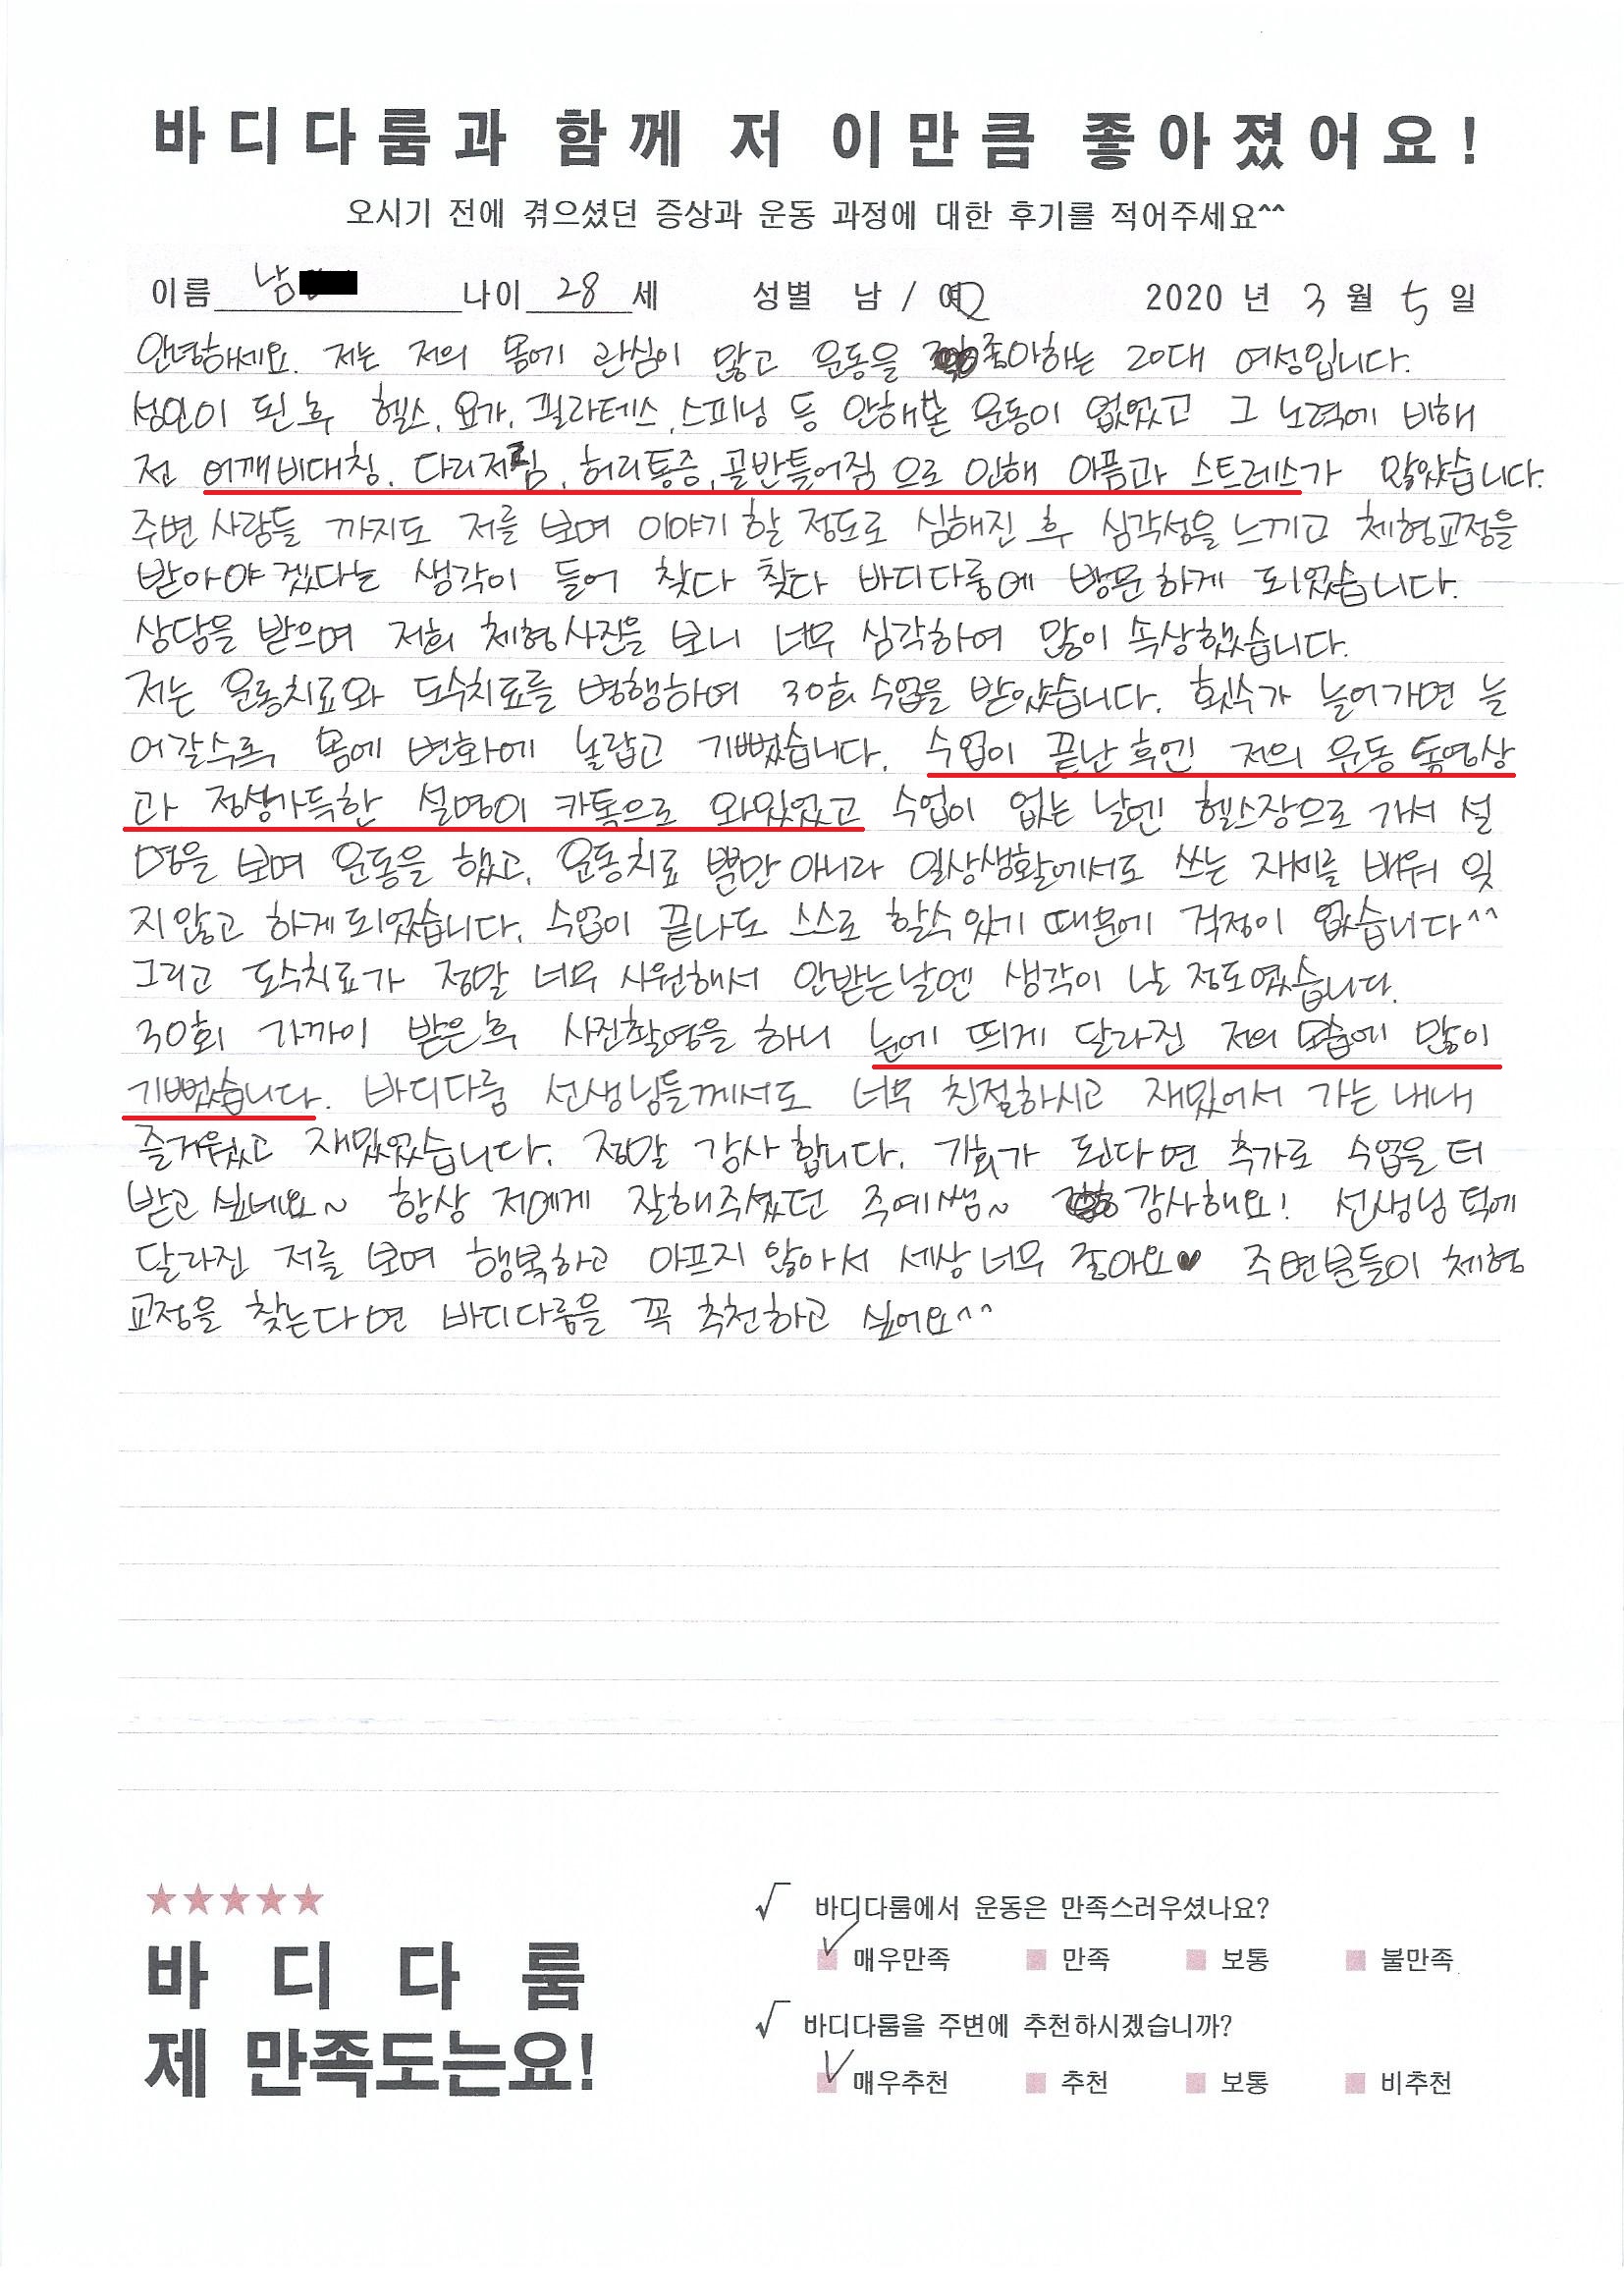 바디다룸과 함께 저 이만큼 좋아졌어요!
오시기 전에 겪으셨던 증상과 운동 과정에 대한 후기를 적어주세요^^
이름 남 나이 28 세 성별 남 / 여 2020 년 3 월 5 일
안녕하세요. 저는 저의 몸에 관심이 많고 운동을 좋아하는 20대 여성입니다.
성인이 된 후 헬스, 요가, 필라테스, 스피닝 등 안해본 운동이 없었고 그 노력에 비해
전 어깨비대칭, 다리저림, 허리통증, 골반틀어짐 으로 인해 아픔과 스트레스가 많았습니다.
주변 사람들 까지도 저를 보며 이야기 할 정도로 심해진 후 심각성을 느끼고 체형교정을
받아야 겠다는 생각이 들어 찾다 찾다 바디다룸에 방문하게 되었습니다.
상담을 받으며 저희 체형사진을 보니 너무 심각하여 많이 속상했습니다.
저는 운동치료와 도수치료를 병행하며 30회 수업을 받았습니다. 횟수가 늘어가면 늘
어갈수록 몸에 변화에 놀랍고 기뻤습니다. 수업이 끝난 후엔 저의 운동 동영상
과 정성가득한 설명이 카톡으로 와있었고 수업이 없는 날엔 헬스장으로 가서 설
명을 보며 운동을 했고, 운동치료 뿐만 아니라 일상생활에서도 쓰는 자세를 배워 잊
지 않고 하게 되었습니다. 수업이 끝나도 스스로 할수 있기 때문에 걱정이 없습니다^^
그리고 도수치료가 정말 너무 시원해서 안받는날엔 생각이 날 정도였습니다.
30회 가까이 받은후 사진촬영을 하니 눈에 띄게 달라진 저의 모습에 많이
기뻤습니다. 바디다룸 선생님들께서도 너무 친절하시고 재밌어서 가는 내내
즐거웠고 재밌었습니다. 정말 감사 합니다. 기회가 된다면 추가로 수업을 더
받고 싶네요~ 항상 저에게 잘해주셨던 주예쌤~ 감사해요! 선생님 덕에
달라진 저를 보며 행복하고 아프지 않아서 세상 너무 좋아요♥ 주변분들이 체형
교정을 찾는다면 바디다룸을 꼭 추천하고 싶어요^^
★★★★★
바디다룸
제 만족도는요!
√ 바디다룸에서 운동은 만족스러우셨나요?
✓ 매우만족 ■ 만족 ■ 보통 ■ 불만족
√ 바디다룸을 주변에 추천하시겠습니까?
✓ 매우추천 ■ 추천 ■ 보통 ■ 비추천